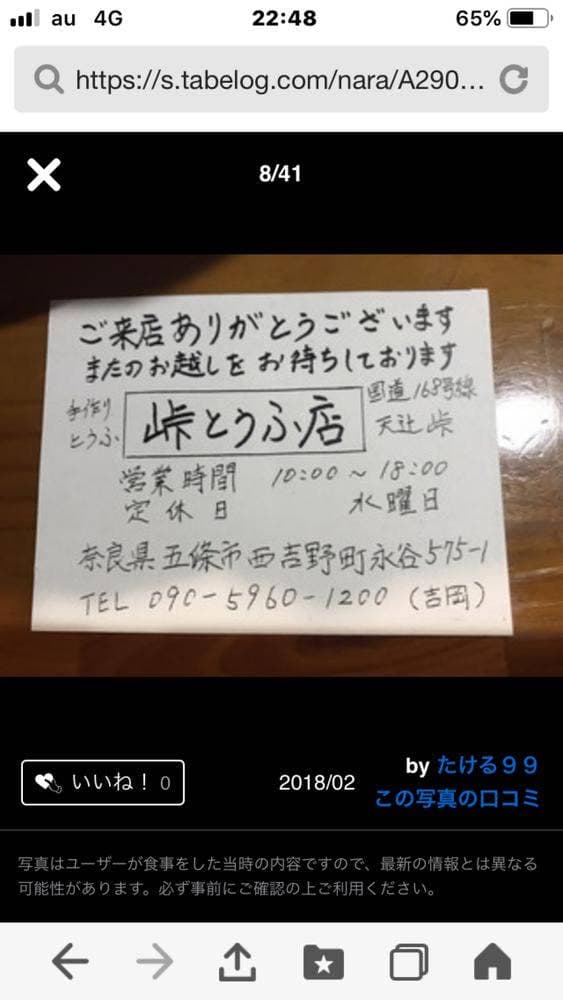 au 4G 22:48 65%
https://s.tabelog.com/nara/A290...
8/41
ご来店ありがとうございます
またのお越しを お待ちしております
手作りとうふ 峠とうふ店 国道168号線 天辻峠
営業時間 10:00～18:00
定休日 水曜日
奈良県五條市西吉野町永谷575-1
TEL 090-5960-1200 (吉岡)
いいね！ 0 2018/02 by たける９９
この写真の口コミ
写真はユーザーが食事をした当時の内容ですので、最新の情報とは異なる
可能性があります。必ず事前にご確認の上ご利用ください。